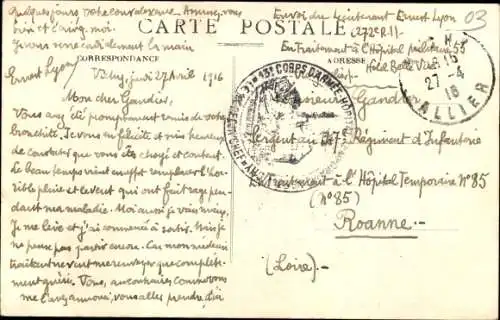 quelques jours votre convalescence. Amusez vous
bien et à moi.
Je vous serre cordialement la main
Ernest Lyon
CARTE POSTALE
CORRESPONDANCE
ADRESSE
Envoi du Lieutenant Ernest Lyon
(272e R.I.)
En traitement à l'Hôpital militaire 55
Hôtel Belle Vue
03
Vichy, jeudi 27 Avril 1916
Mon cher Gandier,
Vous avez été promptement remis de votre
bronchite. Je vous en félicite et suis heureux
de constater que vous êtes choyé et content.
Le beau temps vient enfin remplacer l'hor
rible pluie et le vent qui ont fait rage pen
dant ma maladie. Moi aussi je vais mieux.
Je me lève et j'ai commencé à sortir. Mais je
ne pense pas partir encore. Car mon médecin
traitant ne veut me renvoyer que complète-
ment guéri. Vous, au contraire, comme vous
me l'avez annoncé, vous allez prendre d'ici
Monsieur Gandier
Sergent au 7e Régiment d'Infanterie
En Traitement à l'Hôpital Temporaire N° 85
(N° 85)
Roanne.-
(Loire).-
13e CORPS D'ARMÉE
27-4
16
ALLIER